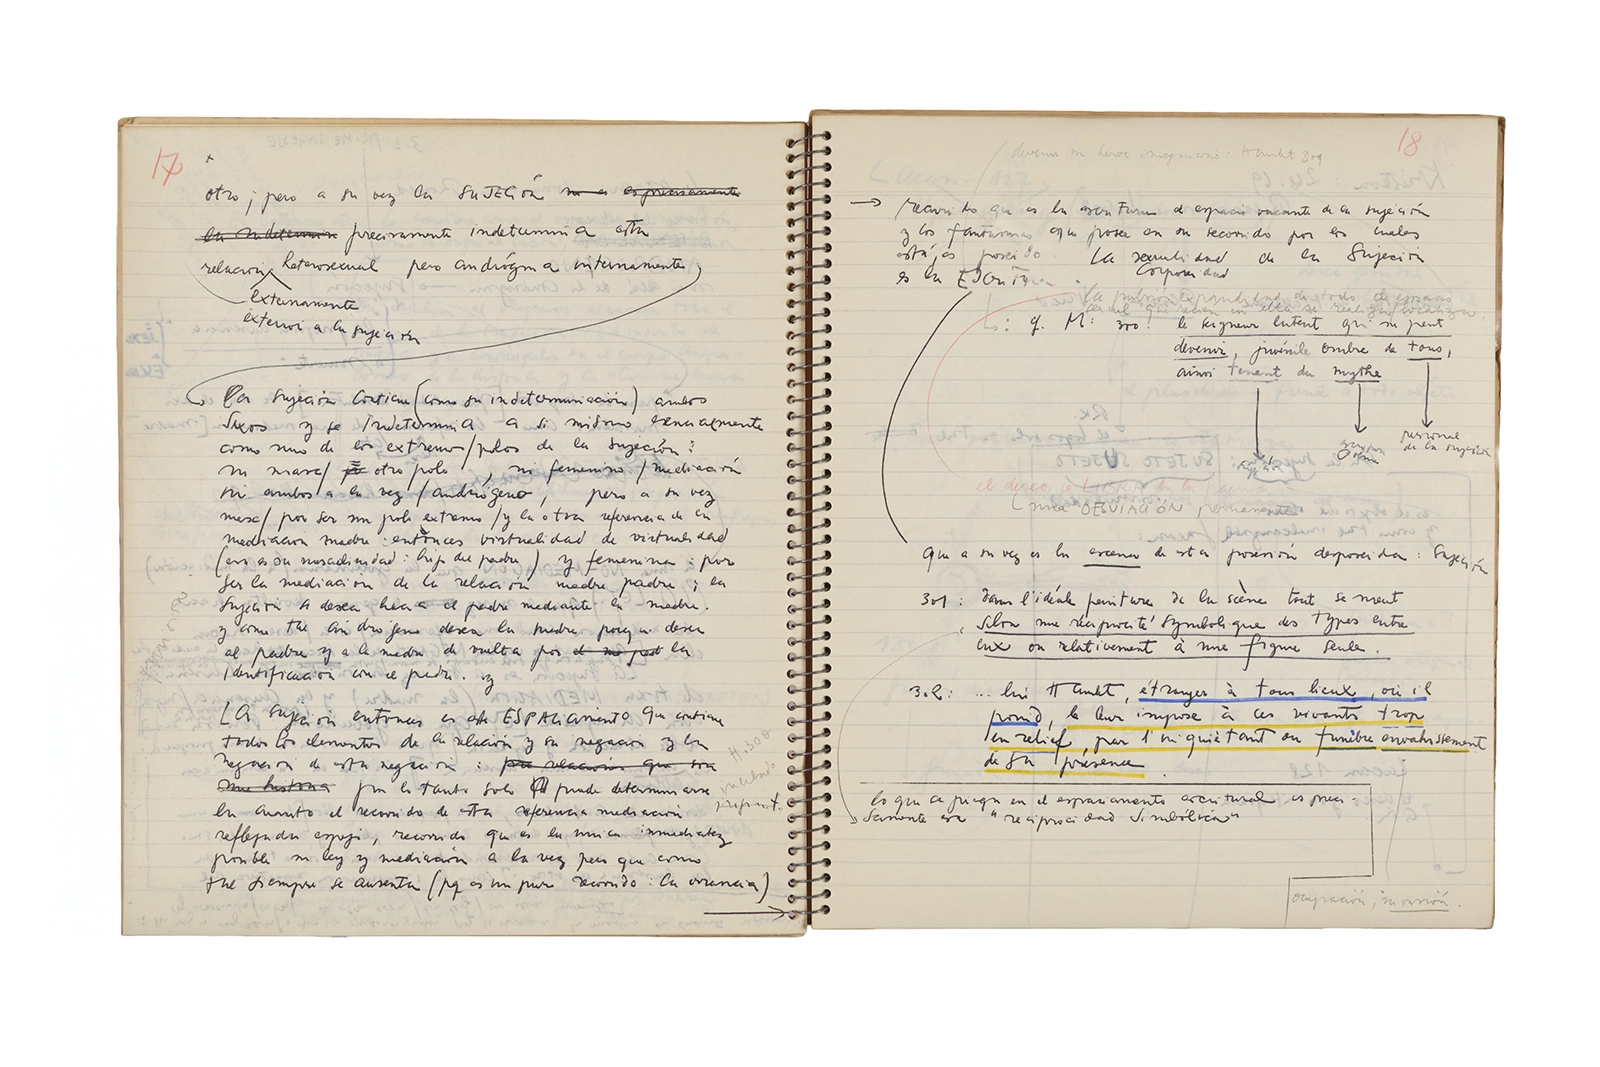 17
otro; pero a su vez la SUJECIÓN
precisamente indetermina esta
relación heterosexual pero andrógina internamente
externamente
exterior a la sujeción
La sujeción contiene (como su indeterminación) ambos
sexos y se indetermina a sí mismo sexualmente
como uno de los extremos/polos de la sujeción:
ni masc/ otro polo, ni femenino/mediación
ni ambos a la vez/andrógeno, pero a su vez
masc/ por ser un polo extremo/y la otra referencia de la
mediación madre: entonces virtualidad de virtualidad
(esa es su masculinidad: hijo del padre) y femenina: por
ser la mediación de la relación madre padre; la
sujeción se desea hacia el padre mediante la madre.
y como tal andrógeno desea la madre porque desea
al padre y a la madre de vuelta por la
identificación con el padre. y
LA sujeción entonces es este ESPACIAMIENTO que contiene
todos los elementos de la relación y su negación y la
negación de esta negación: por relaciones que son
una historia por lo tanto solo puede determinarse
en cuanto el recorrido de esta referencia mediación
reflejada espejo, recorrido que es la única inmediatez
posible su ley y mediación a la vez pero que como
tal siempre se ausenta (pq es un puro recorrido: la errancia)
H. 300
18
devenir su héroe imaginario: Hamlet 301
→ recorrido que es la escritura el espacio vacante de la sujeción
y los fantasmas que posee en su recorrido por los cuales
está, es poseído. La sexualidad de la Sujeción
corporeidad
es la ESCRITURA.
cf. M: 300: le seigneur latent qui ne peut
devenir, juvénile ombre de tous,
ainsi tenant du mythe
personal
de la sujeción
SUJETO SUJETO
el deseo se LIBRA en la
una DESVIACIÓN permanente
que a su vez es la escena de esta posesión desposeída: Sujeción
301: dans l'idéale peinture de la scène tout se meut
selon une réciprocité symbolique des types entre
eux ou relativement à une figure seule.
302: ... lui Hamlet, étranger à tous lieux, où il
poind, le leur impose à ces vivants trop
en relief, par l'inquiétant ou funèbre envahissement
de sa présence
lo que se juega en el espaciamiento escritural es preci-
samente esa "reciprocidad simbólica"
ocupación, inversión.